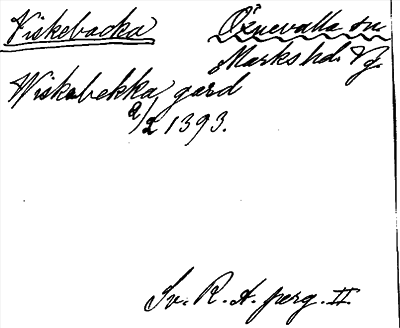 Viskebacka
Öxnevalla sn
Marks hd. Vg.
Wiskabekka gard
2/2 1393.
Sv. R. A. perg. II